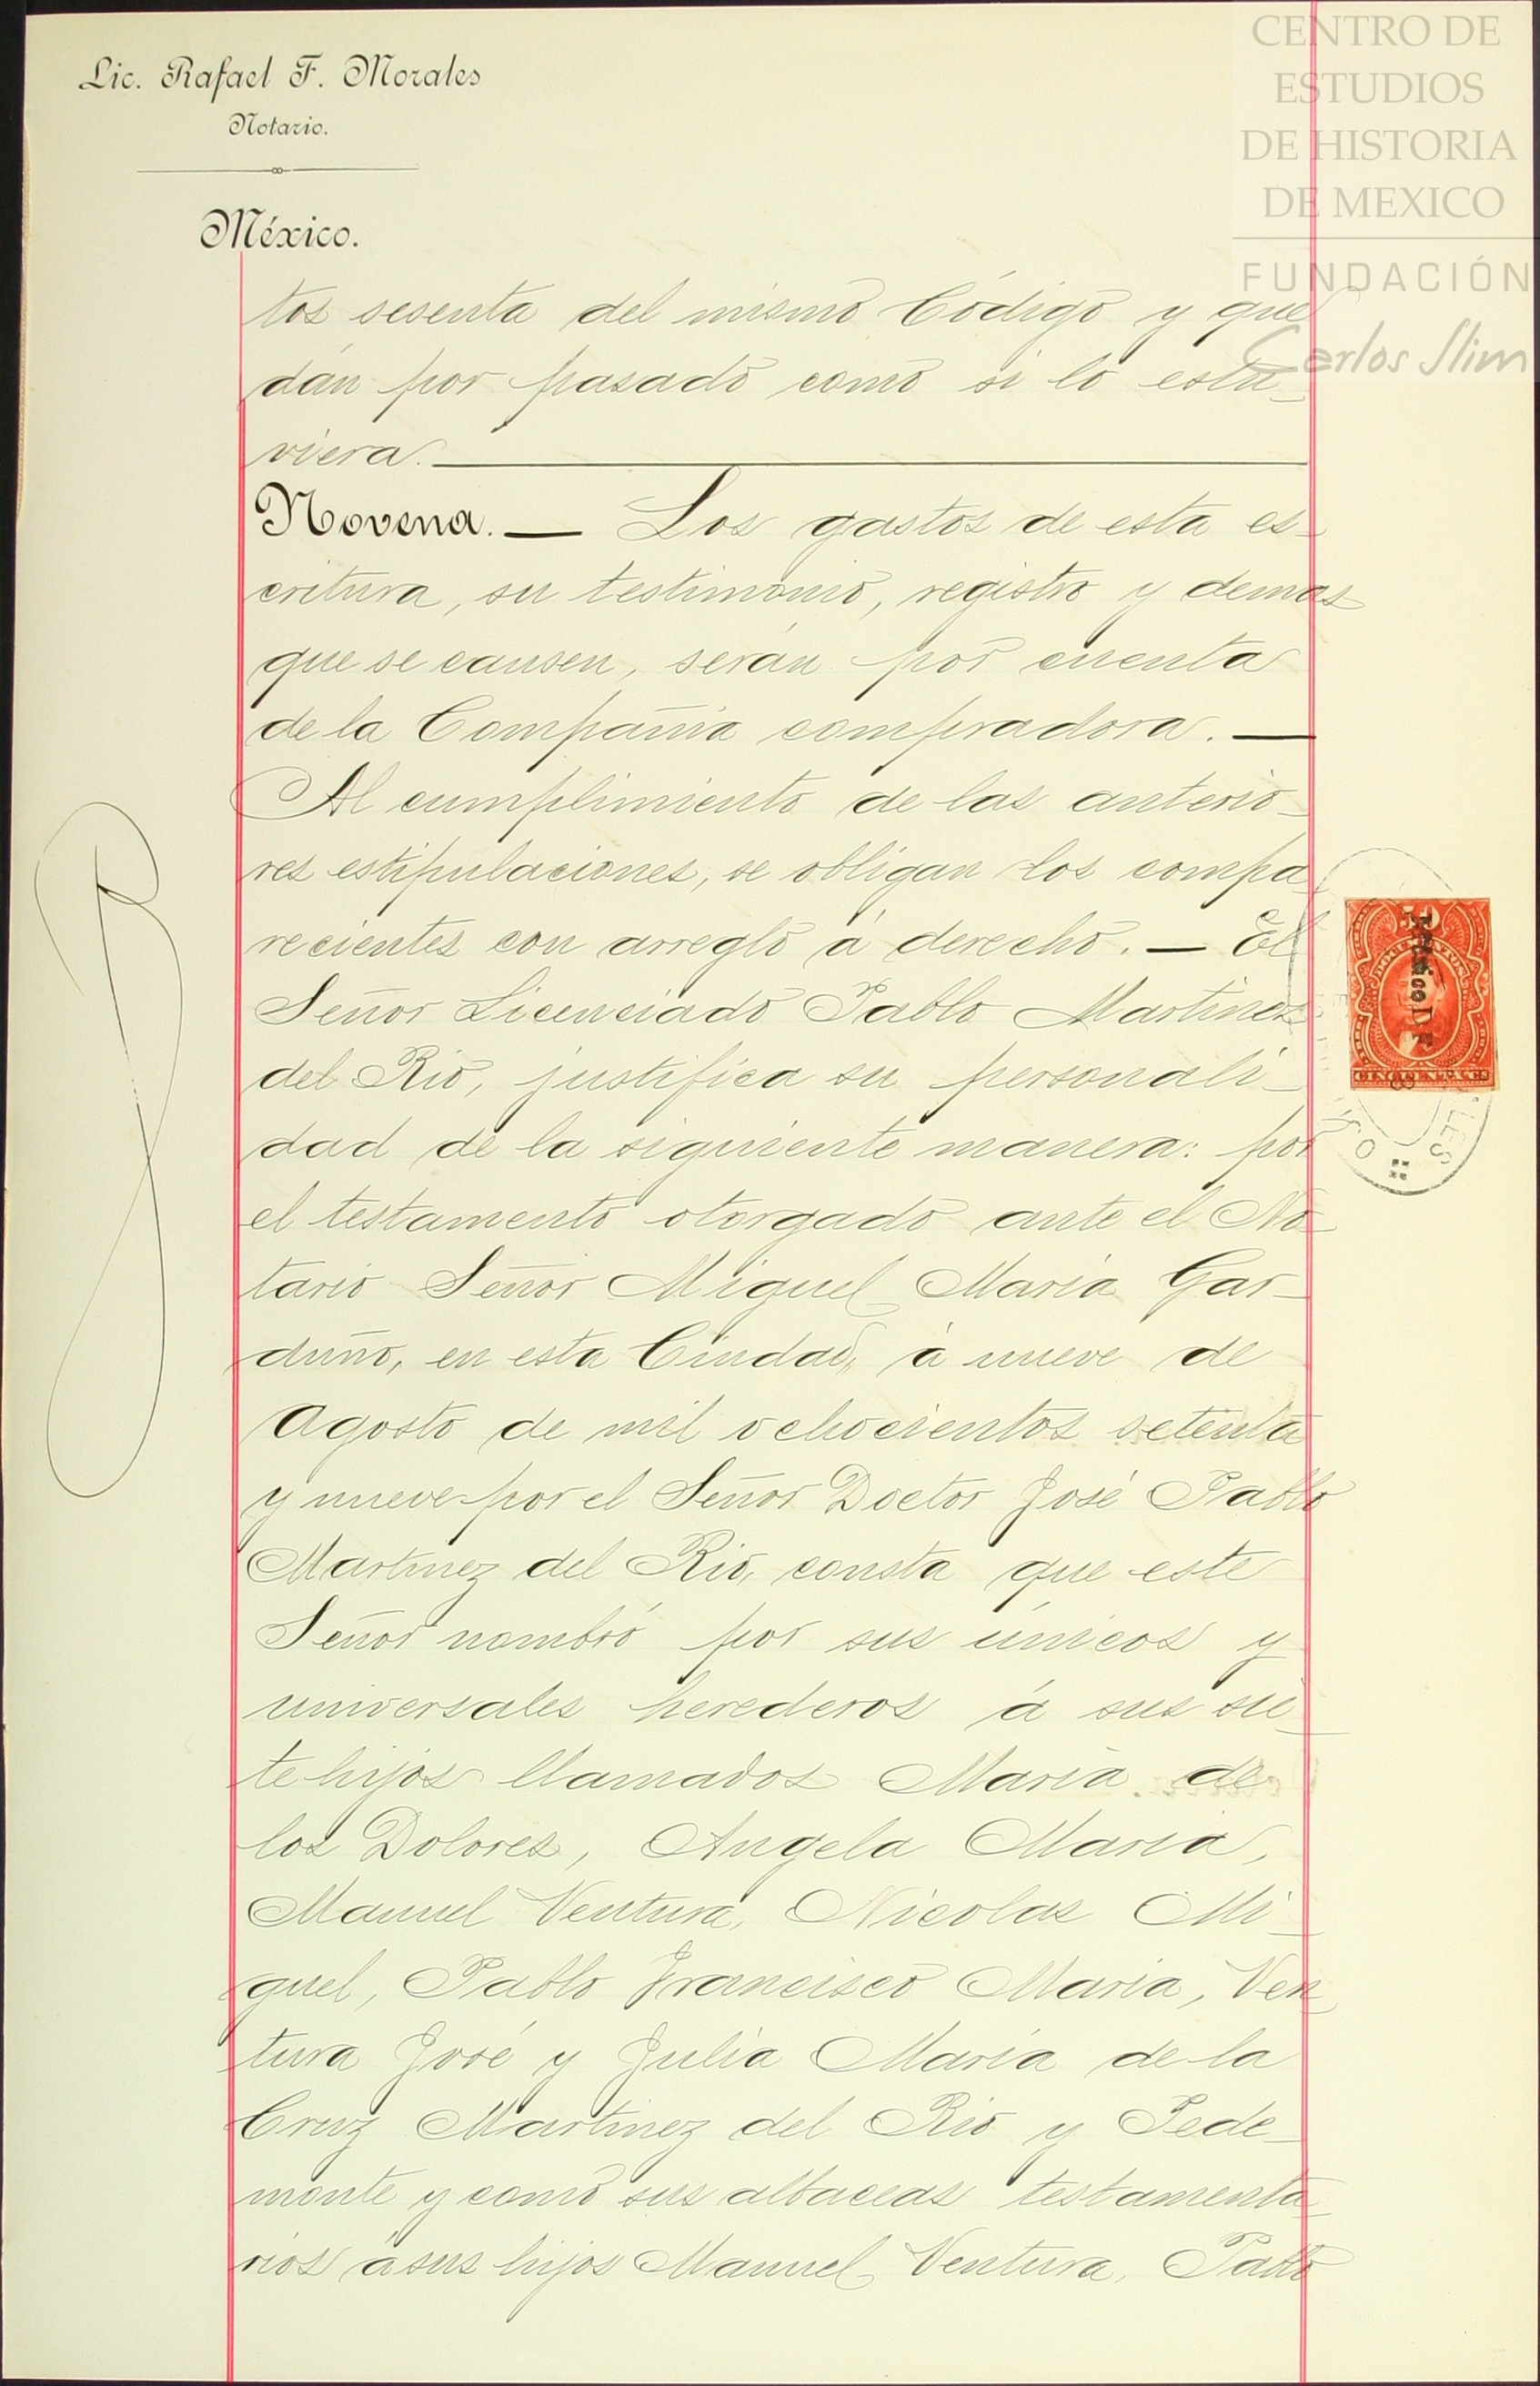 Lic. Rafael F. Morales
Notario.
México.
CENTRO DE
ESTUDIOS
DE HISTORIA
DE MEXICO
FUNDACIÓN
Carlos Slim
tos sesenta del mismo Código y que
dán por pasado como si lo estu-
viera.
Novena. — Los gastos de esta es-
critura, su testimonio, registro y demas
que se causen, serán por cuenta
de la Compañia compradora. —
Al cumplimiento de las anterio-
res estipulaciones, se obligan los compa
recientes con arreglo á derecho. — El
Señor Licenciado Pablo Martinez
del Rio, justifica su personali-
dad de la siguiente manera: por
el testamento otorgado ante el No-
tario Señor Miguel Maria Gar-
duño, en esta Ciudad, á nueve de
Agosto de mil ochocientos setenta
y nueve por el Señor Doctor José Pablo
Martinez del Rio, consta que este
Señor nombró por sus únicos y
universales herederos á sus sie-
te hijos llamados Maria de
los Dolores, Angela Maria,
Manuel Ventura, Nicolas Mi-
guel, Pablo Francisco Maria, Ven
tura José y Julia Maria de la
Cruz Martinez del Rio y Pede-
monte y como sus albaceas testamenta-
rios á sus hijos Manuel Ventura, Pablo
México D F